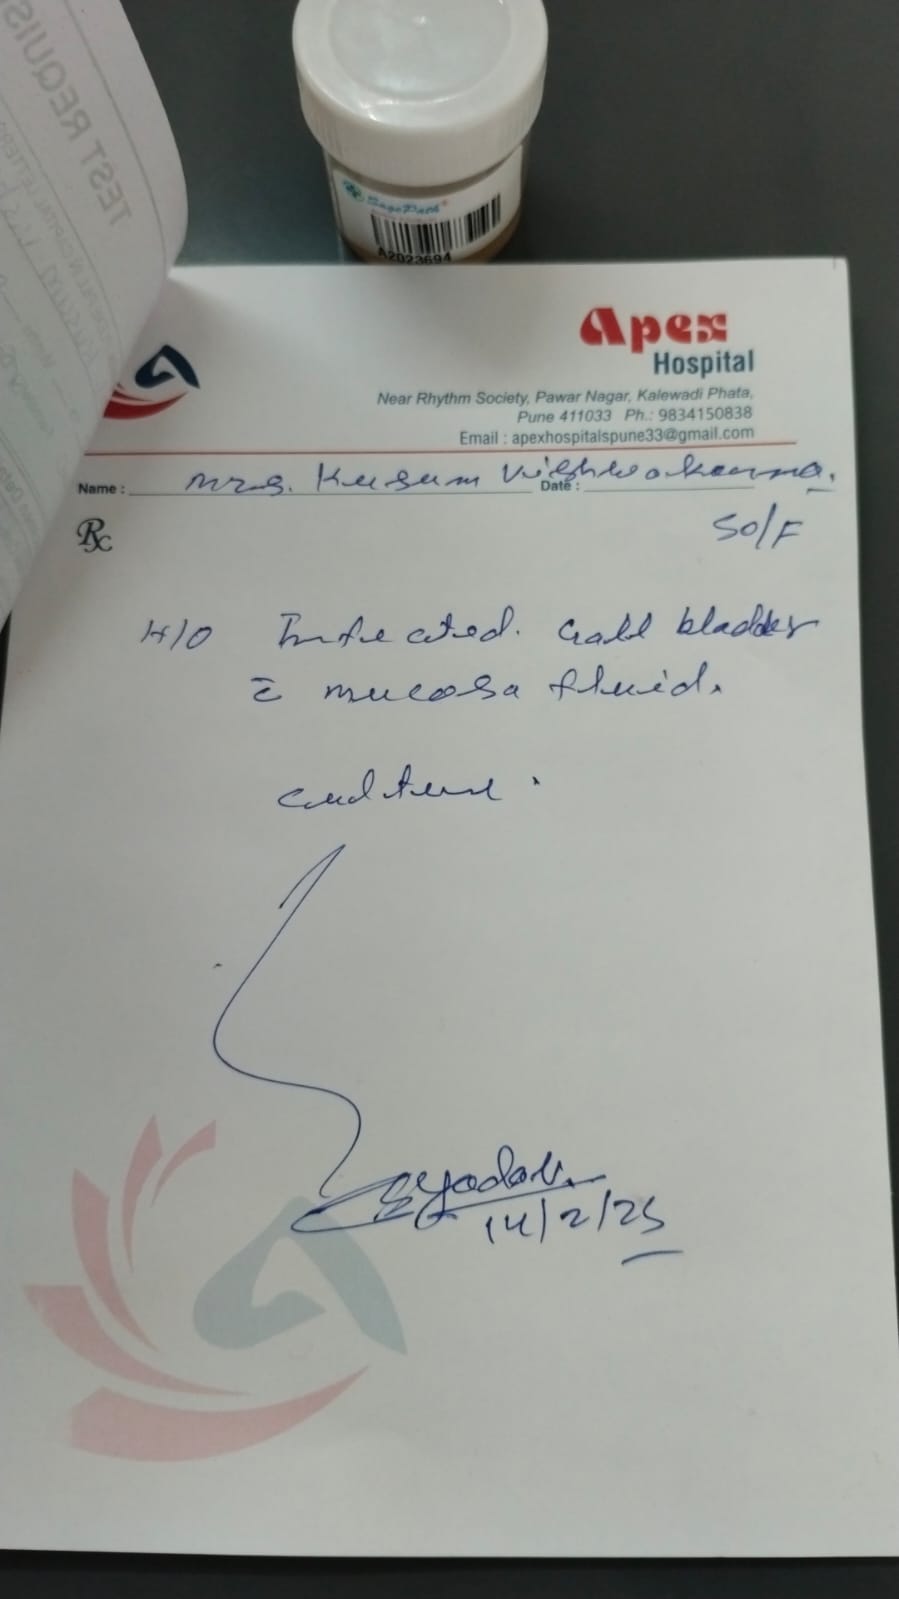 TEST REQUIS
SagePath
A2023694
Apex
Hospital
Near Rhythm Society, Pawar Nagar, Kalewadi Phata,
Pune 411033 Ph.: 9834150838
Email : apexhospitalspune33@gmail.com
Name : Mrs. Kusum Vishwakarma. Date :
Rx
50/F
H/O Infected. Gall bladder
c̄ mucosa fluid.
culture.
Yadav
14/2/25